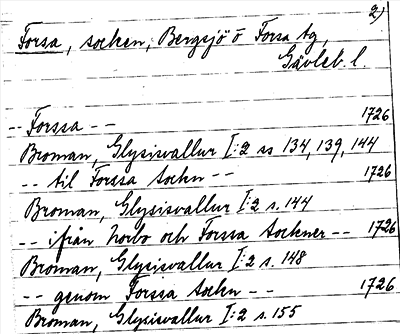 2)
Forsa, socken, Bergsjö o Forsa tg,
Gävleb. l.
-- Forssa -- 1726
Broman, Glysisvallur I:2 ss 134, 139, 144
-- til Forssa Sockn -- 1726
Broman, Glysisvallur I:2 s. 144
-- ifrån Norbo och Forssa Sockner -- 1726
Broman, Glysisvallur I:2 s. 148
-- genom Forssa Sockn -- 1726
Broman, Glysisvallur I:2 s. 155